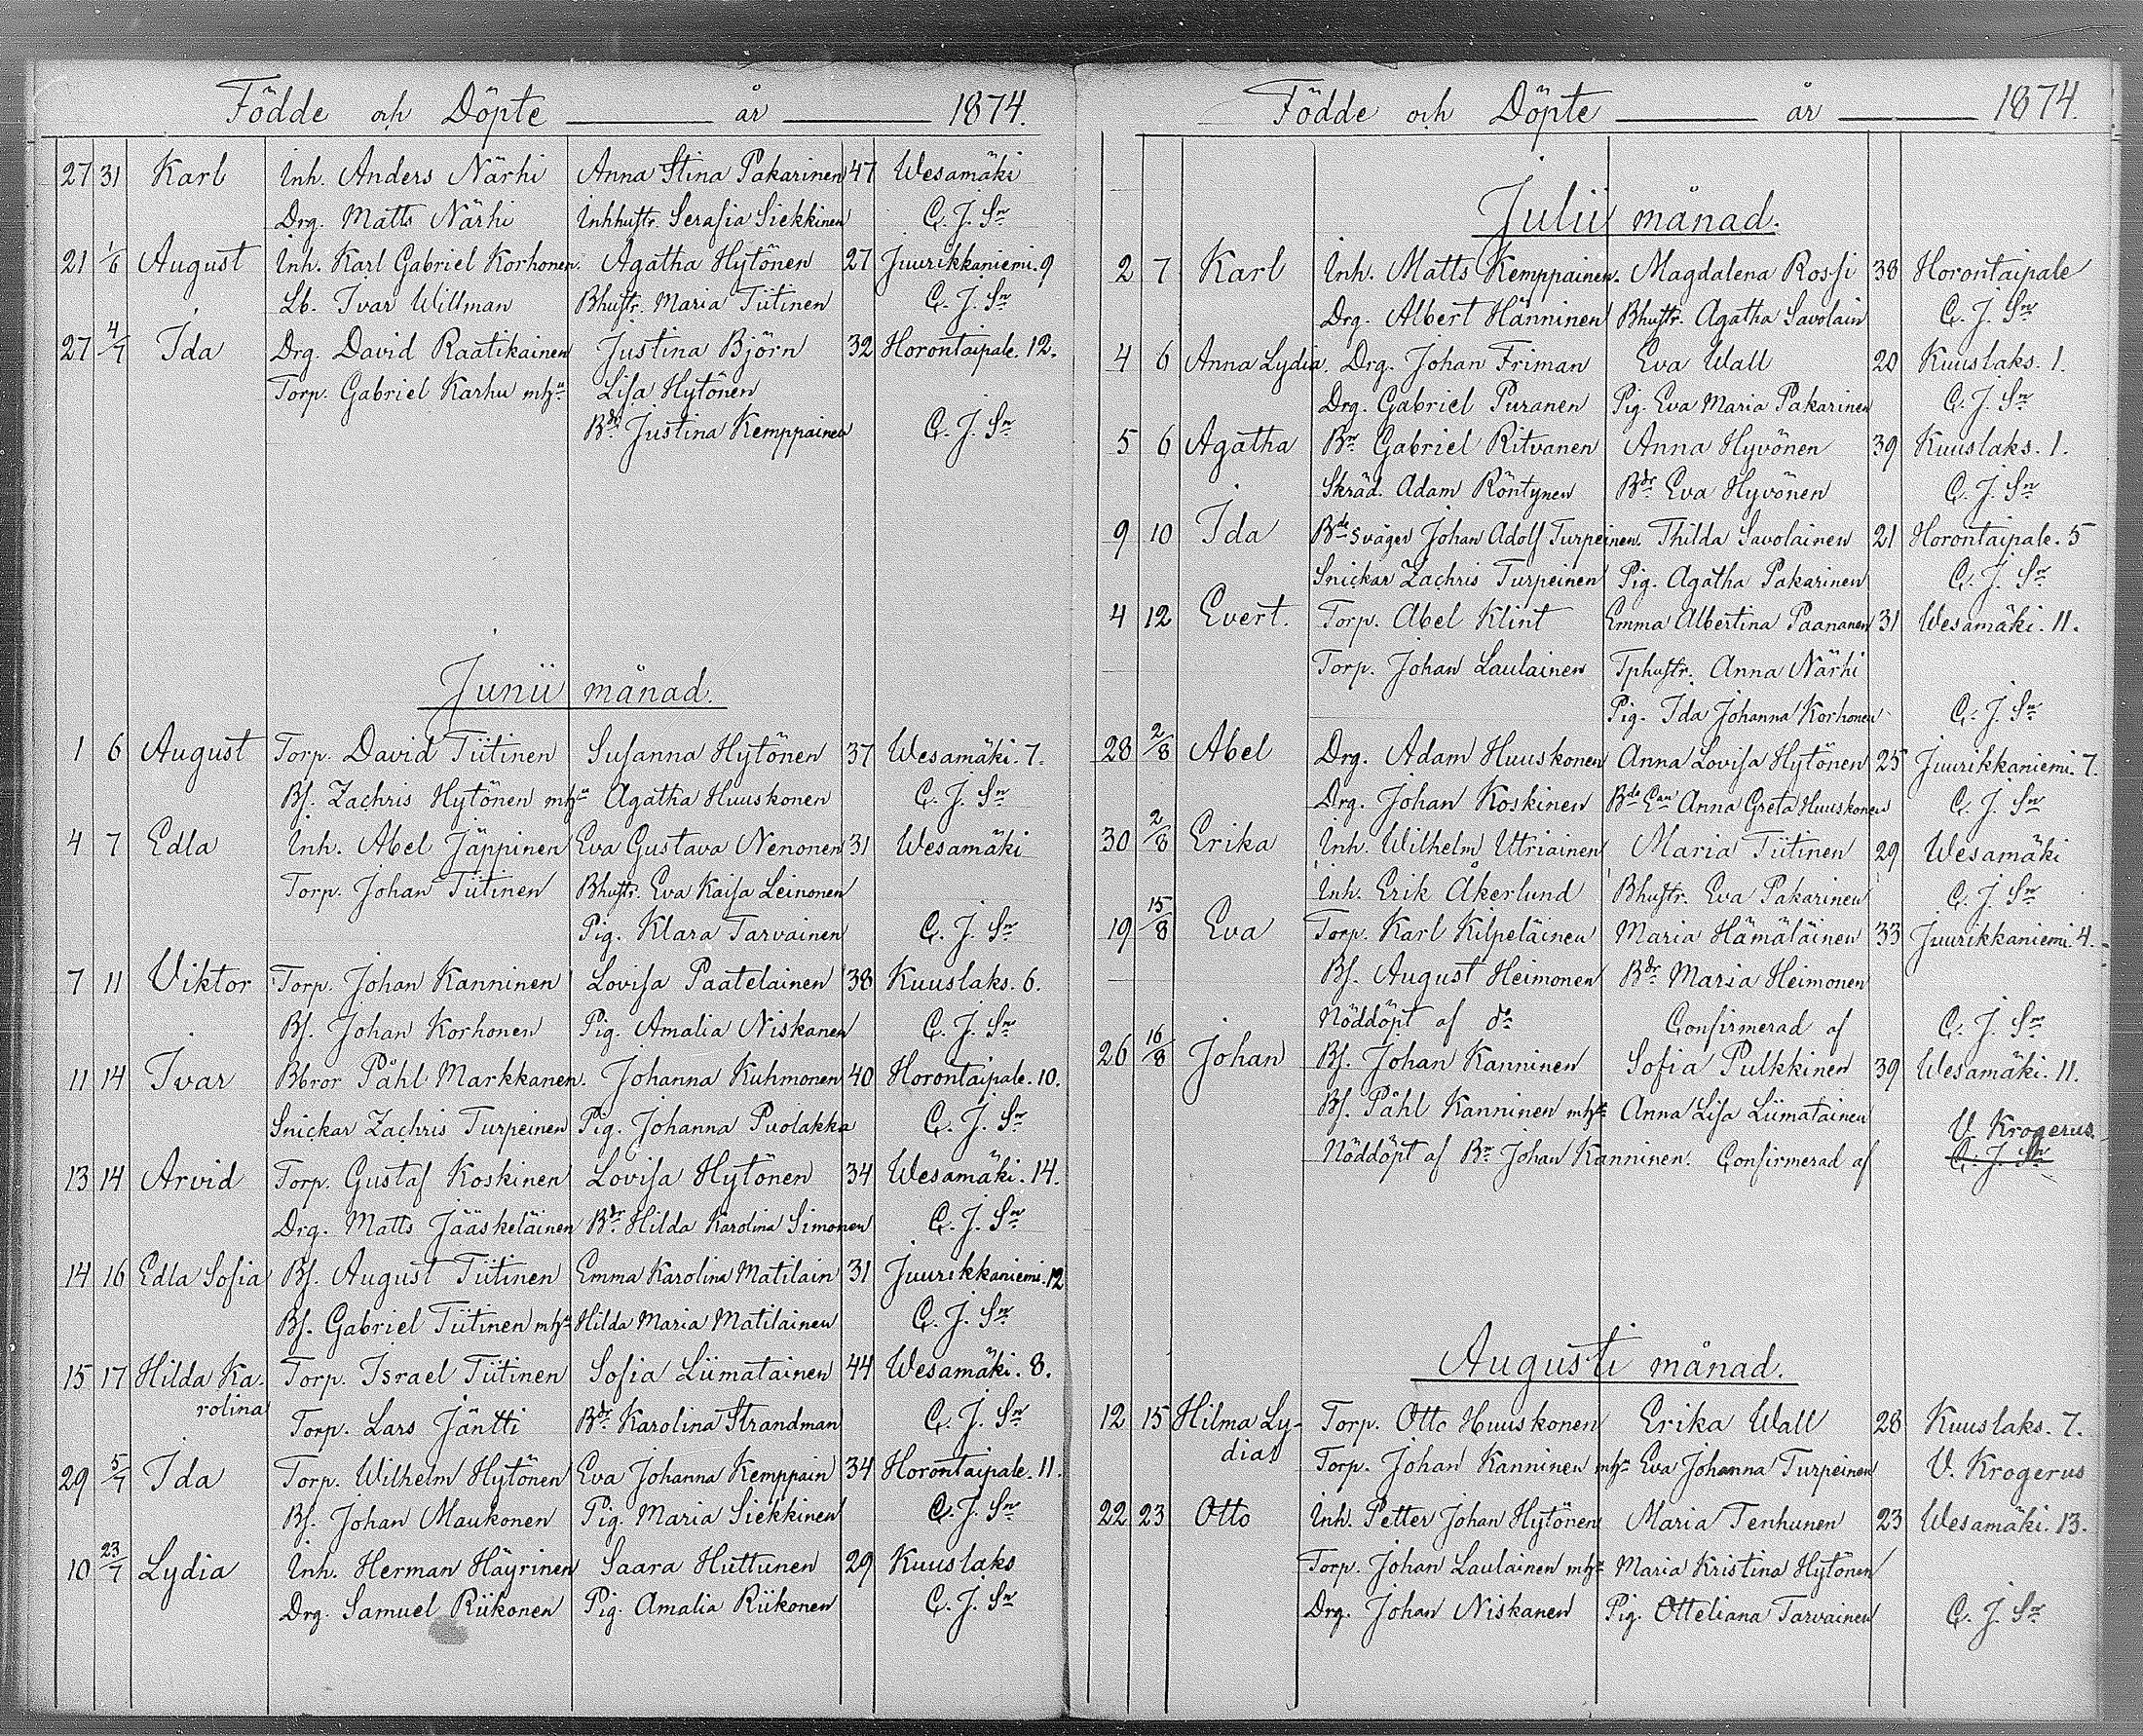 Födde och Döpte år 1874.
27 31 Karl Inh. Anders Närhi Anna Stina Pakarinen 47 Wesamäki
Drg. Matts Närhi Inhhustr. Serafia Siekkinen C. J. Sn
21 1/6 August Inh. Karl Gabriel Korhonen. Agatha Hytönen 27 Juurikkaniemi. 9
Lb. Ivar Willman Bhustr. Maria Tiitinen C. J. Sn
27 4/7 Ida Drg. David Raatikainen Justina Björn 32 Horontaipale. 12.
Torp. Gabriel Karhu mhu Lisa Hytönen
Bdr Justina Kemppainen C. J. Sn
Junii månad.
1 6 August Torp. David Tiitinen Susanna Hytönen 37 Wesamäki. 7.
Bs. Zachris Hytönen mhu Agatha Huuskonen C. J. Sn
4 7 Edla Inh. Abel Jäppinen Eva Gustava Nenonen 31 Wesamäki
Torp. Johan Tiitinen Bhustr. Eva Kaisa Leinonen
Pig. Klara Tarvainen C. J. Sn
7 11 Viktor Torp. Johan Kanninen Lovisa Paatelainen 38 Kuuslaks. 6.
Bs. Johan Korhonen Pig. Amalia Niskanen C. J. Sn
11 14 Ivar Bbror Påhl Markkanen. Johanna Kuhmonen 40 Horontaipale. 10.
Snickar Zachris Turpeinen Pig. Johanna Puolakka C. J. Sn
13 14 Arvid Torp. Gustaf Koskinen Lovisa Hytönen 34 Wesamäki. 14.
Drg. Matts Jääskeläinen Bdr Hilda Karolina Simonen C. J. Sn
14 16 Edla Sofia Bs. August Tiitinen Emma Karolina Matilain 31 Juurikkaniemi. 12
Bs. Gabriel Tiitinen mhu Hilda Maria Matilainen C. J. Sn
15 17 Hilda Ka- Torp. Israel Tiitinen Sofia Liimatainen 44 Wesamäki. 8.
rolina Torp. Lars Jäntti Bdr Karolina Strandman C. J. Sn
29 5/7 Ida Torp. Wilhelm Hytönen Eva Johanna Kemppain 34 Horontaipale. 11.
Bs. Johan Maukonen Pig. Maria Siekkinen C. J. Sn
10 23/7 Lydia Inh. Herman Häyrinen Saara Huttunen 29 Kuuslaks
Drg. Samuel Riikonen Pig. Amalia Riikonen C. J. Sn
Födde och Döpte år 1874.
Julii månad.
2 7 Karl Inh. Matts Kemppainen. Magdalena Rossi 38 Horontaipale
Drg. Albert Hänninen Bhustr. Agatha Savolain C. J. Sn
4 6 Anna Lydia. Drg. Johan Friman Eva Wall 20 Kuuslaks. 1.
Drg. Gabriel Puranen Pig. Eva Maria Pakarinen C. J. Sn
5 6 Agatha Bn Gabriel Ritvanen Anna Hyvönen 39 Kuuslaks. 1.
Skräd. Adam Röntynen Bdr Eva Hyvönen C. J. Sn
9 10 Ida Bde svåger Johan Adolf Turpeinen. Thilda Savolainen 21 Horontaipale. 5
Snickar Zachris Turpeinen Pig. Agatha Pakarinen C. J. Sn
4 12 Evert. Torp. Abel Klint Emma Albertina Paananen 31 Wesamäki. 11.
Torp. Johan Laulainen Tphustr. Anna Närhi
Pig. Ida Johanna Korhonen C. J. Sn
28 2/8 Abel Drg. Adam Huuskonen Anna Lovisa Hytönen 25 Juurikkaniemi. 7.
Drg. Johan Koskinen Bde Ean Anna Greta Huuskonen C. J. Sn
30 2/8 Erika Inh. Wilhelm Utriainen Maria Tiitinen 29 Wesamäki
Inh. Erik Åkerlund Bhustr. Eva Pakarinen C. J. Sn
19 15/8 Eva Torp. Karl Kilpeläinen Maria Hämäläinen 33 Juurikkaniemi. 4.
Bs. August Heimonen Bdr Maria Heimonen
Nöddöpt af do Confirmerad af C. J. Sn
26 16/8 Johan Bs. Johan Kanninen Sofia Pulkkinen 39 Wesamäki. 11.
Bs. Påhl Kanninen mhu Anna Lisa Liimatainen V. Krogerus.
Nöddöpt af Bn Johan Kanninen. Confirmerad af C. J. Sn
Augusti månad.
12 15 Hilma Ly- Torp. Otto Huuskonen Erika Wall 28 Kuuslaks. 7.
dia Torp. Johan Kanninen mhu Eva Johanna Turpeinen V. Krogerus
22 23 Otto Inh. Petter Johan Hytönen Maria Tenhunen 23 Wesamäki. 13.
Torp. Johan Laulainen mhu Maria Kristina Hytönen
Drg. Johan Niskanen Pig. Otteliana Tarvainen C. J. Sn